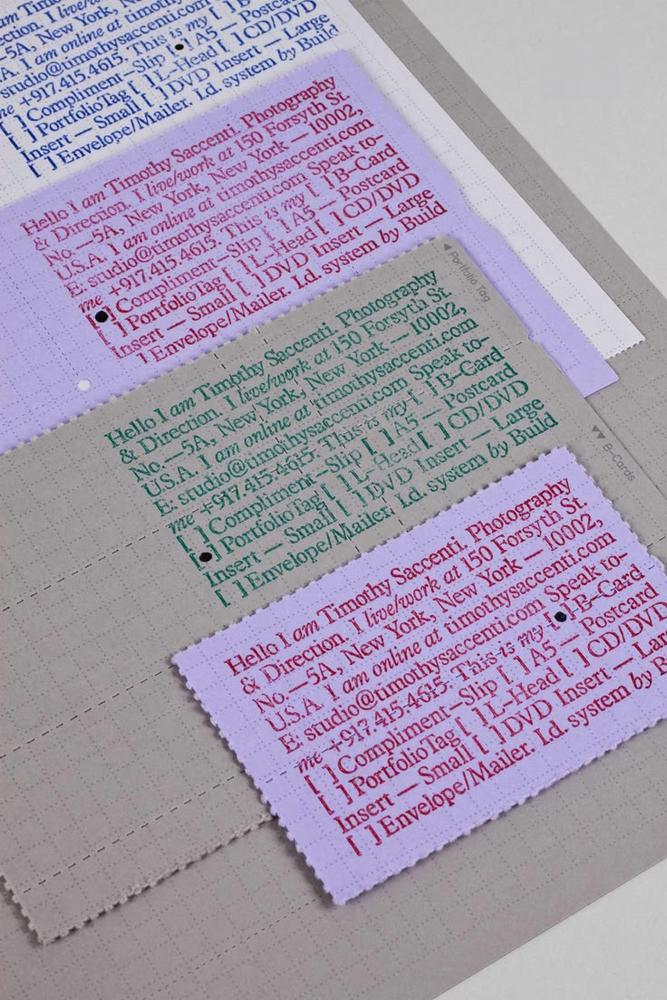 am Timothy
I live/work
—5A, New York, New
I am online at timothysaccenti
studio@timothysaccenti.com
me +917.415.4615. This is my
[ ] Compliment-Slip [●] A5 — Postcard
[ ] PortfolioTag [ ] L-Head [ ] CD/DVD
Insert — Small [ ] DVD Insert — Large
[ ] Envelope/Mailer. I.d. system by Build
Hello I am Timothy Saccenti. Photography
& Direction. I live/work at 150 Forsyth St.
No.—5A, New York, New York — 10002,
U.S.A. I am online at timothysaccenti.com
E: studio@timothysaccenti.com Speak to-
me +917.415.4615. This is my [ ] B-Card
[●] Compliment-Slip [ ] A5 — Postcard
[ ] PortfolioTag [ ] L-Head [ ] CD/DVD
Insert — Small [ ] DVD Insert — Large
[ ] Envelope/Mailer. I.d. system by Build
▲ Portfolio Tag
Hello I am Timothy Saccenti. Photography
& Direction. I live/work at 150 Forsyth St.
No.—5A, New York, New York — 10002,
U.S.A. I am online at timothysaccenti.com
E: studio@timothysaccenti.com Speak to-
me +917.415.4615. This is my [ ] B-Card
[ ] Compliment-Slip [ ] A5 — Postcard
[●] PortfolioTag [ ] L-Head [ ] CD/DVD
Insert — Small [ ] DVD Insert — Large
[ ] Envelope/Mailer. I.d. system by Build
▼▼ B-Cards
Hello I am Timothy Saccenti. Photography
& Direction. I live/work at 150 Forsyth St.
No.—5A, New York, New York — 10002,
U.S.A. I am online at timothysaccenti.com
E: studio@timothysaccenti.com Speak to-
me +917.415.4615. This is my [●] B-Card
[ ] Compliment-Slip [ ] A5 — Postcard
[ ] PortfolioTag [ ] L-Head [ ] CD/DVD
Insert — Small [ ] DVD Insert — Large
[ ] Envelope/Mailer. I.d. system by Build